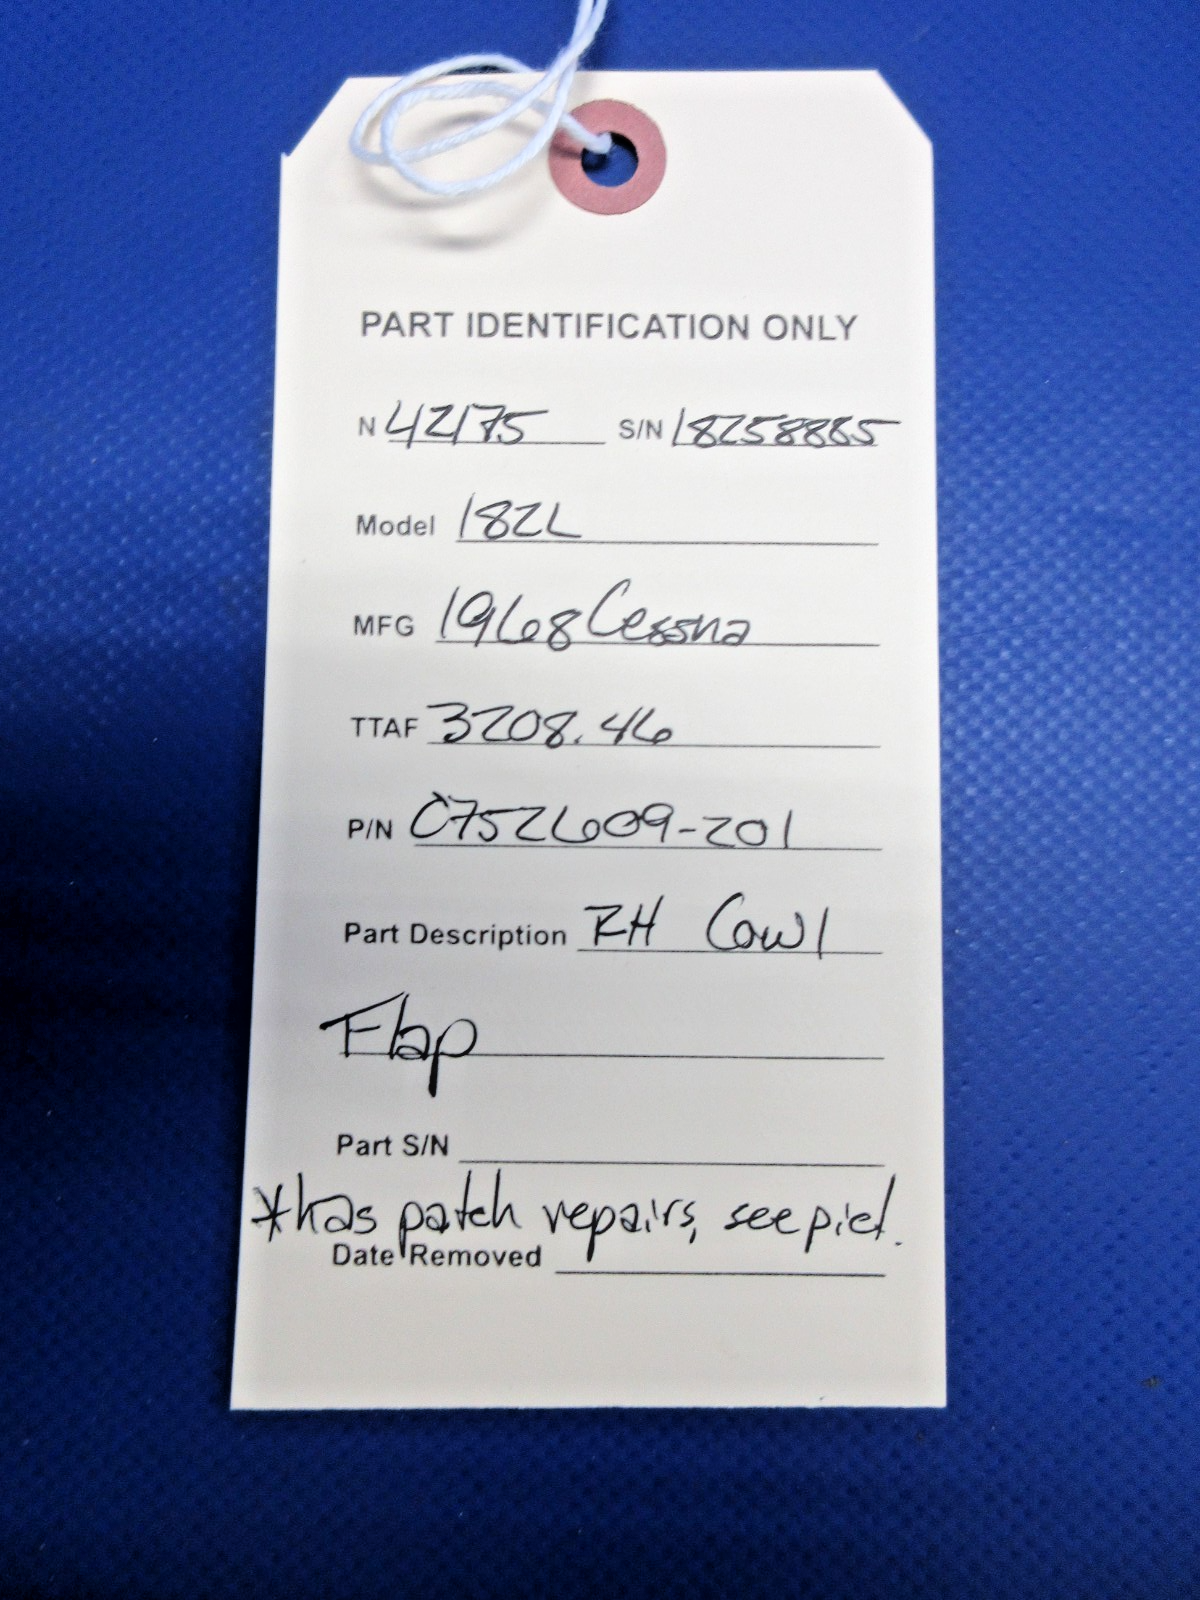 PART IDENTIFICATION ONLY
N 42175 S/N 18258885
Model 182L
MFG 1968 Cessna
TTAF 3208.46
P/N 0752609-201
Part Description RH Cowl
Flap
Part S/N
*has patch repairs, see pict.
Date Removed